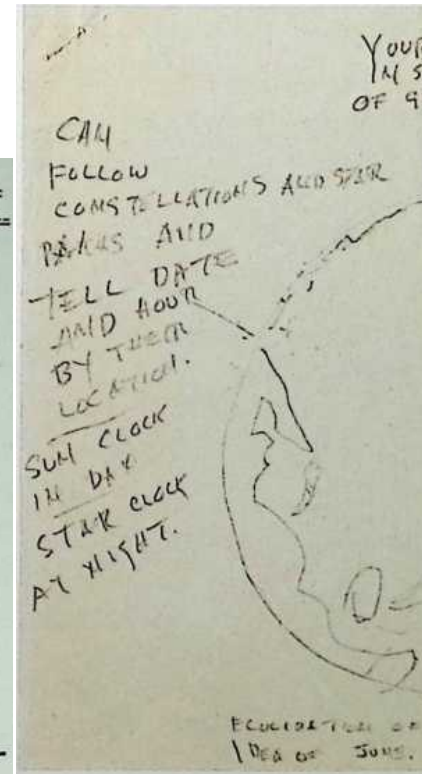 YOUR
IN S
OF 9
CAN
FOLLOW
CONSTELLATIONS AND STAR
AND
TELL DATE
AND HOUR
BY THEIR
LOCATION.
SUN CLOCK
IN DAY
STAR CLOCK
AT NIGHT.
IDEA OF JUNE.